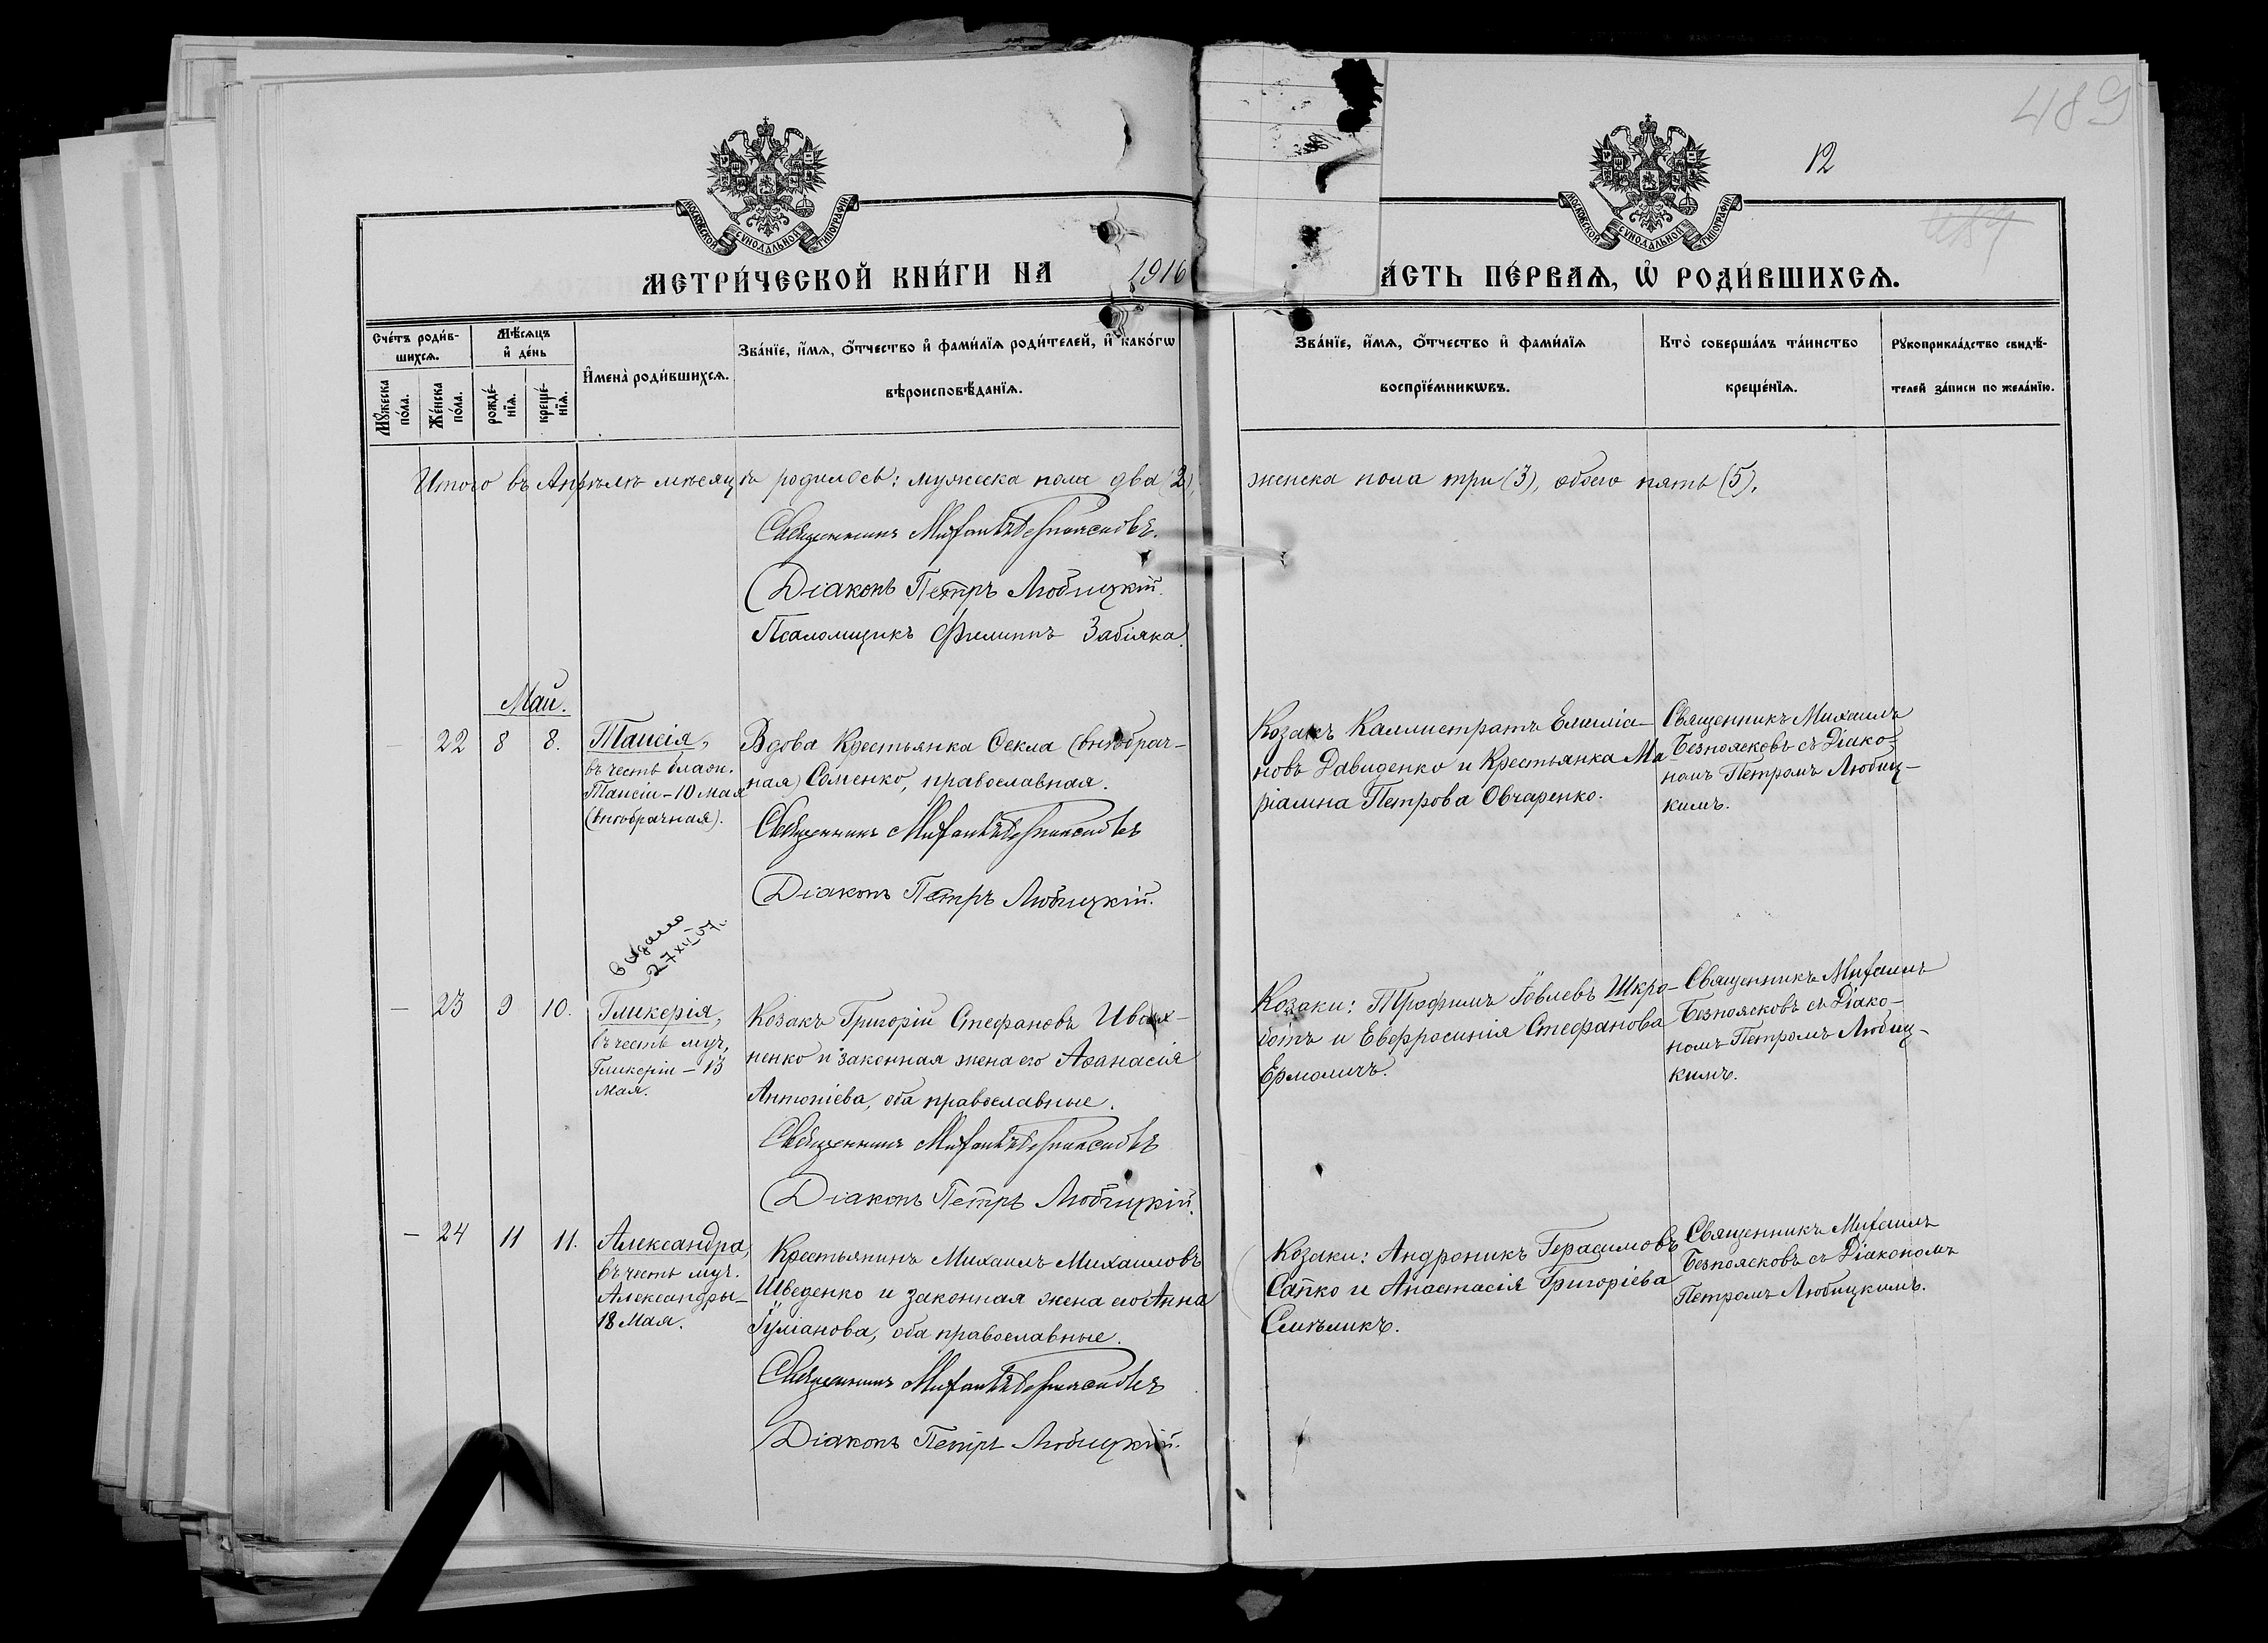 489
12
МОСКОВСКОЙ СѴНОДАЛЬНОЙ ТИПОГРАФІИ
МОСКОВСКОЙ СѴНОДАЛЬНОЙ ТИПОГРАФІИ
МЕТРИ́ЧЕСКОЙ КНИ́ГИ НА 1916
А́СТЬ ПЕ́РВАѦ, Ѡ҆ РОДИ́ВШИХСѦ.
Сче́тъ роди́в-
шихсѧ.
Мѣ́сѧцъ
и҆ де́нь
Мꙋ́жеска
по́ла.
Же́нска
по́ла.
рожде́-
нїѧ.
креще́-
нїѧ.
И҆мена̀ роди́вшихсѧ.
Зва́нїе, и҆́мѧ, ѻ҆́тчество и҆ фами́лїѧ роди́телей, и҆ како́гѡ
вѣроисповѣ́данїѧ.
Зва́нїе, и҆́мѧ, ѻ҆́тчество и҆ фами́лїѧ
воспрїе́мникѡвъ.
Кто̀ соверша́лъ та́инство
креще́нїѧ.
Рꙋкоприкла́дство свидѣ́-
телей за́писи по жела́нїю.
Итого въ Апрѣлѣ мѣсяцѣ родилось: мужеска пола два (2), женска пола три (3), обоего пять (5).
Священникъ Михаилъ Безпоясковъ.
Діаконъ Петръ Любицкій.
Псаломщикъ Филиппъ Забіяка.
Май.
— 22 8 8.
Таисія,
въ честь блаж.
Таисіи – 10 мая
(внѣбрачная).
Вдова Крестьянка Ѳекла (внѣбрач-
ная) Соменко, православная.
Священникъ Михаилъ Безпоясковъ
Діаконъ Петръ Любицкій.
Козакъ Каллистратъ Емиліа-
новъ Давиденко и Крестьянка Ма
ріамна Петрова Овчаренко.
Священникъ Михаилъ
Безпоясковъ съ Діако-
номъ Петромъ Любиц-
кимъ.
Выдано
27 XII 57.
— 23 9 10.
Гликерія,
въ честь муч.
Гликеріи – 13
Мая.
Козакъ Григорій Стефановъ Ивах-
ненко и законная жена его Аѳанасія
Антоніева, оба православные.
Священникъ Михаилъ Безпоясковъ
Діаконъ Петръ Любицкій.
Козаки: Трофимъ Іовлевъ Шкро-
ботъ и Евфросинія Стефанова
Ермоличъ.
Священникъ Михаилъ
Безпоясковъ съ Діако-
номъ Петромъ Любиц-
кимъ.
— 24 11 11.
Александра,
въ честь муч.
Александры –
18 Мая.
Крестьянинъ Михаилъ Михаиловъ
Шведенко и законная жена его Анна
Іуліанова, оба православные.
Священникъ Михаилъ Безпоясковъ
Діаконъ Петръ Любицкій.
Козаки: Андроникъ Герасимовъ
Сапко и Анастасія Григоріева
Смѣликъ.
Священникъ Михаилъ
Безпоясковъ съ Діакономъ
Петромъ Любицкимъ.